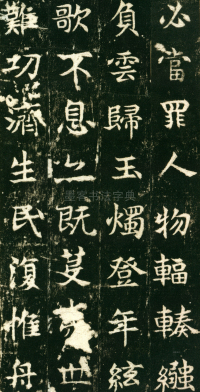 必當罪人物輻輳繈
負雲歸玉燭登年絃
歌不息既芟世
難切濟生民復惟舟